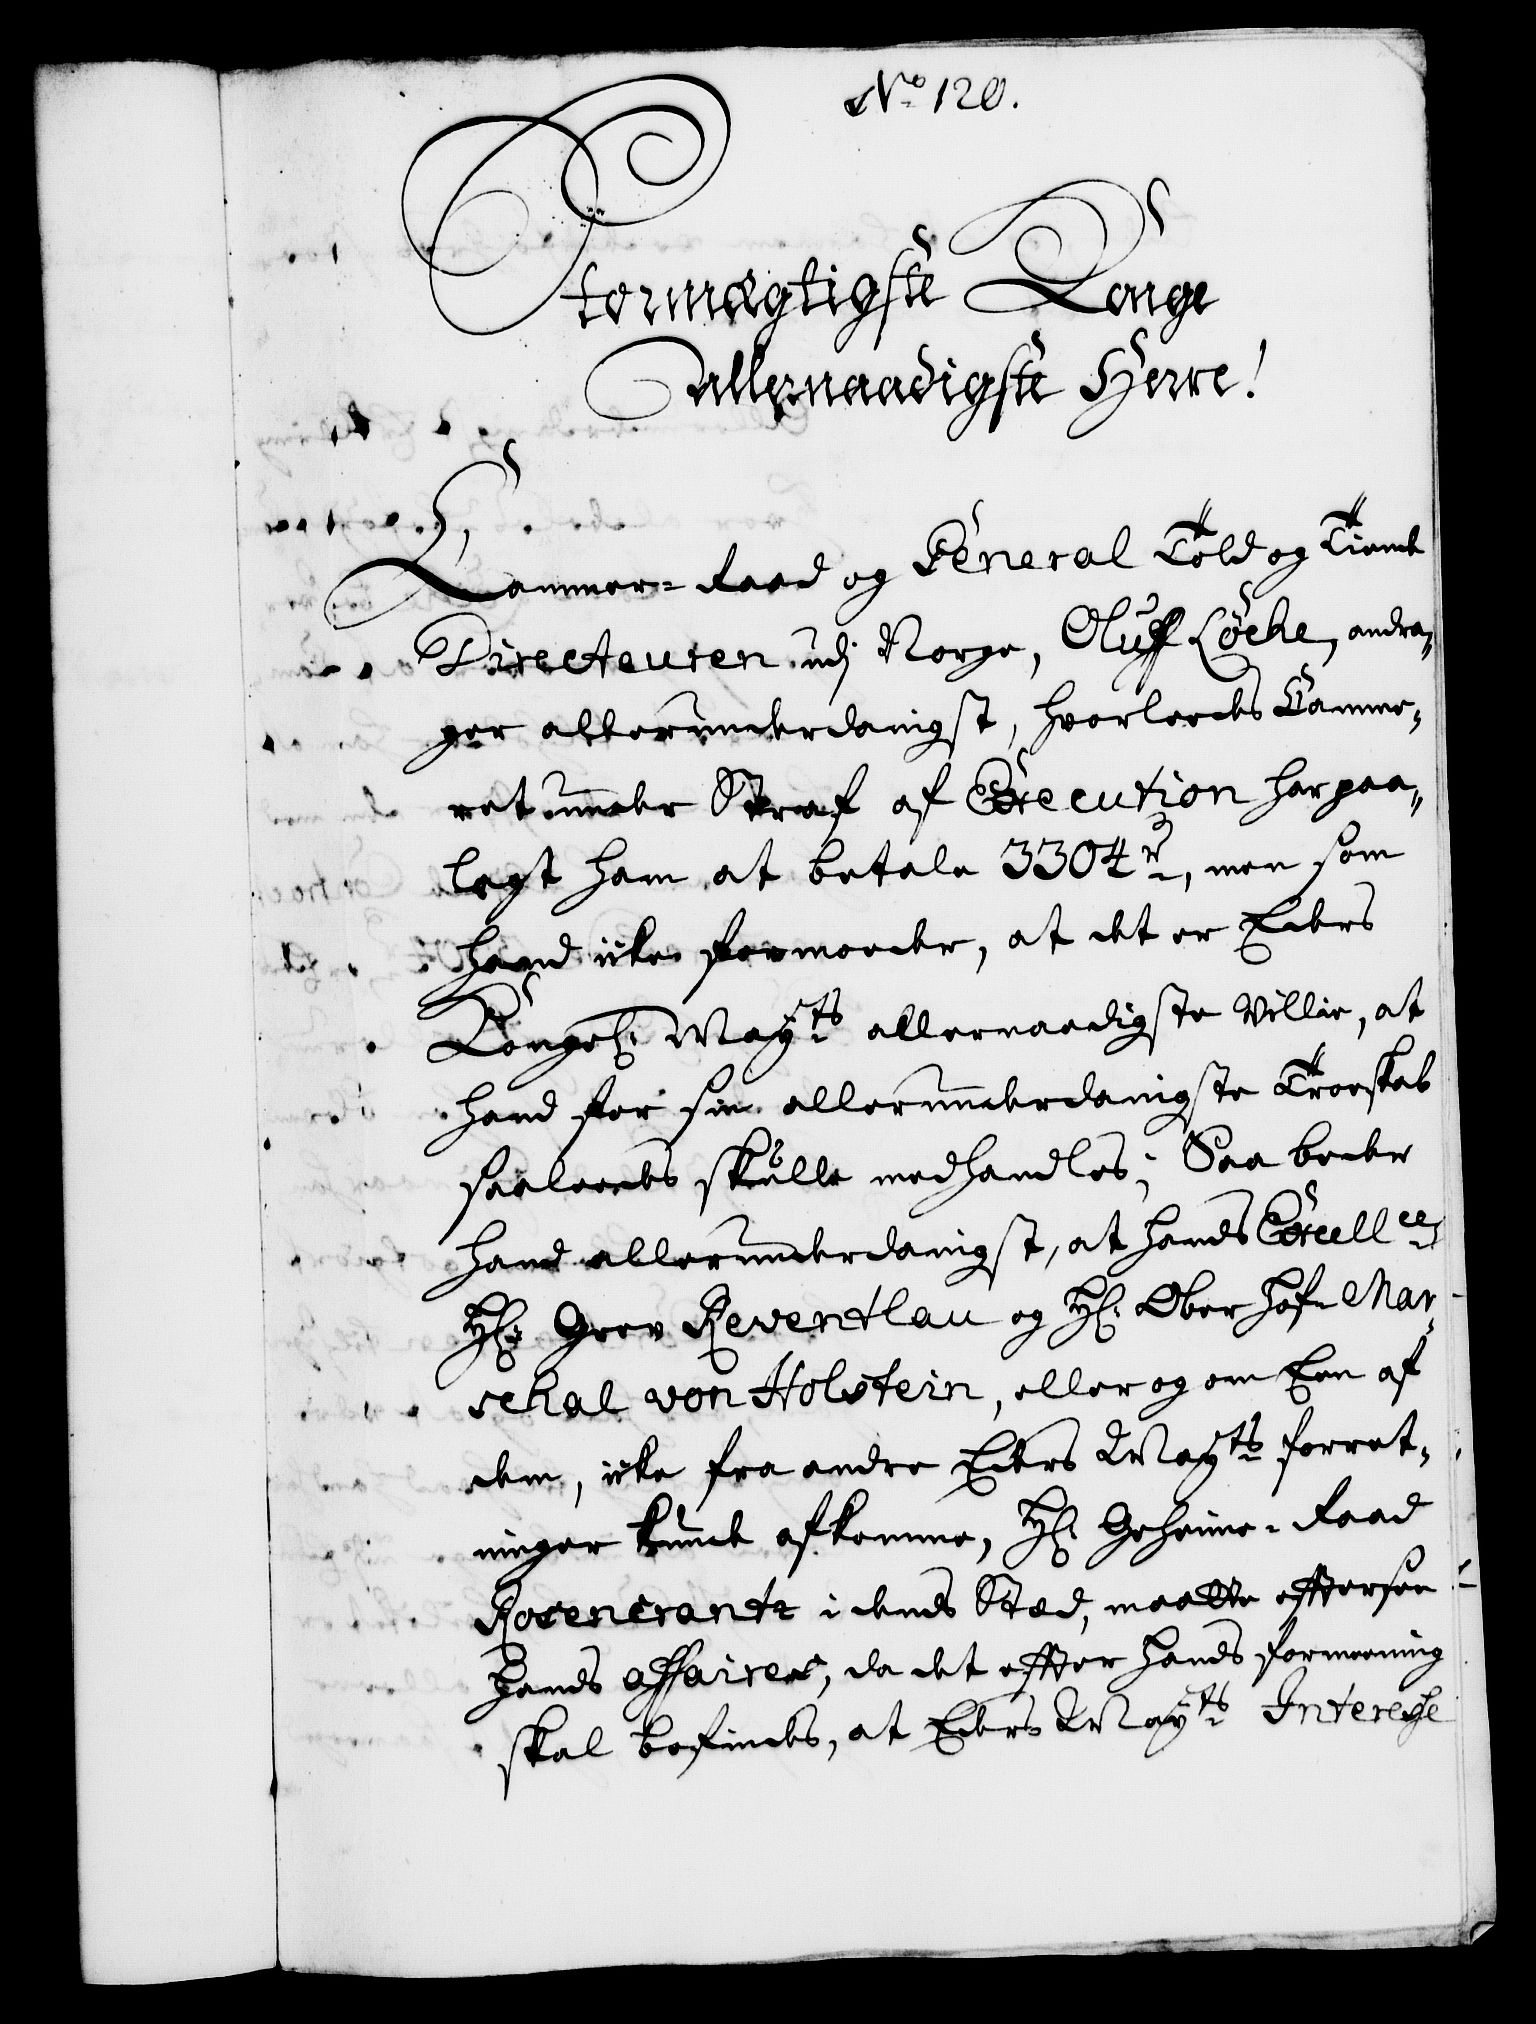 No 120.
Stormægtigste Konge
allernaadigste Herre!
Cammer-Raad og General Told og Tiende
Directeuren udj Norge, Oluff Løche, andra„
ger allerunderdanigst, hvorledes Camme„
ret under Straf af Execution har paa„
lagt ham at betale 3304 rd, men som
hand icke formoeder, at det er Eders
Kongel: Mayts allernaadigste Villie, at
hand for sin allerunderdanigste Troeskab
saaledes skulle medhandles; Saa beder
hand allerunderdanigst, at hands Excellce
Hl: Grev Reventlau og Hl: Ober Hof-Mar„
schal von Holstein, eller og om Een af
dem, icke fra andre Eders Mayts forret„
ninger kunde afkomme, Hl: Geheime-Raad
Rosencrantz i dends Stæd, maatte effterse
Hands affaires, da det effter Hands formeening
skal befindes, at Eders Mayts Interesse